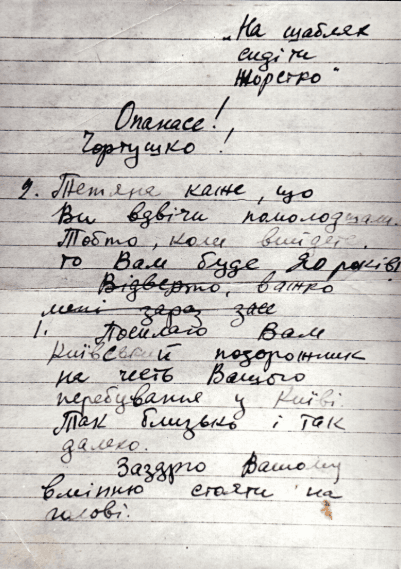 „На щаблях
сидіти
жорстко“
Опанасе!
Чортушко!
2. Тетяна каже, що
Ви вдвічи помолодшали.
Тобто, коли вийдете,
то Вам буде 20 років!
Відверто, важко
мені зараз
1. Посилаю Вам
Київський подорожник
на честь Вашого
перебування у Київі.
Так близько і так
далеко.
Заздрю Вашому
вмінню стояти на
голові.